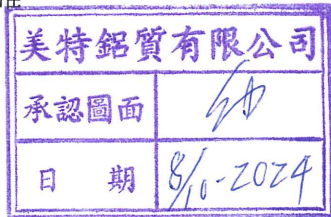 美特鋁質有限公司
承認圖面
日期 8/10-2024